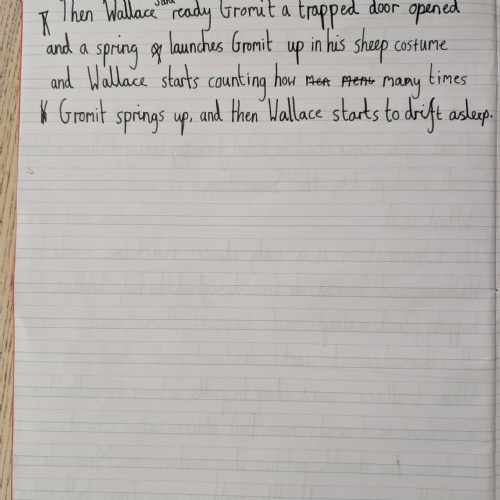 Then Wallace said ready Gromit a trapped door opened
and a spring launches Gromit up in his sheep costume
and Wallace starts counting how men menu many times
Gromit springs up, and then Wallace starts to drift asleep.